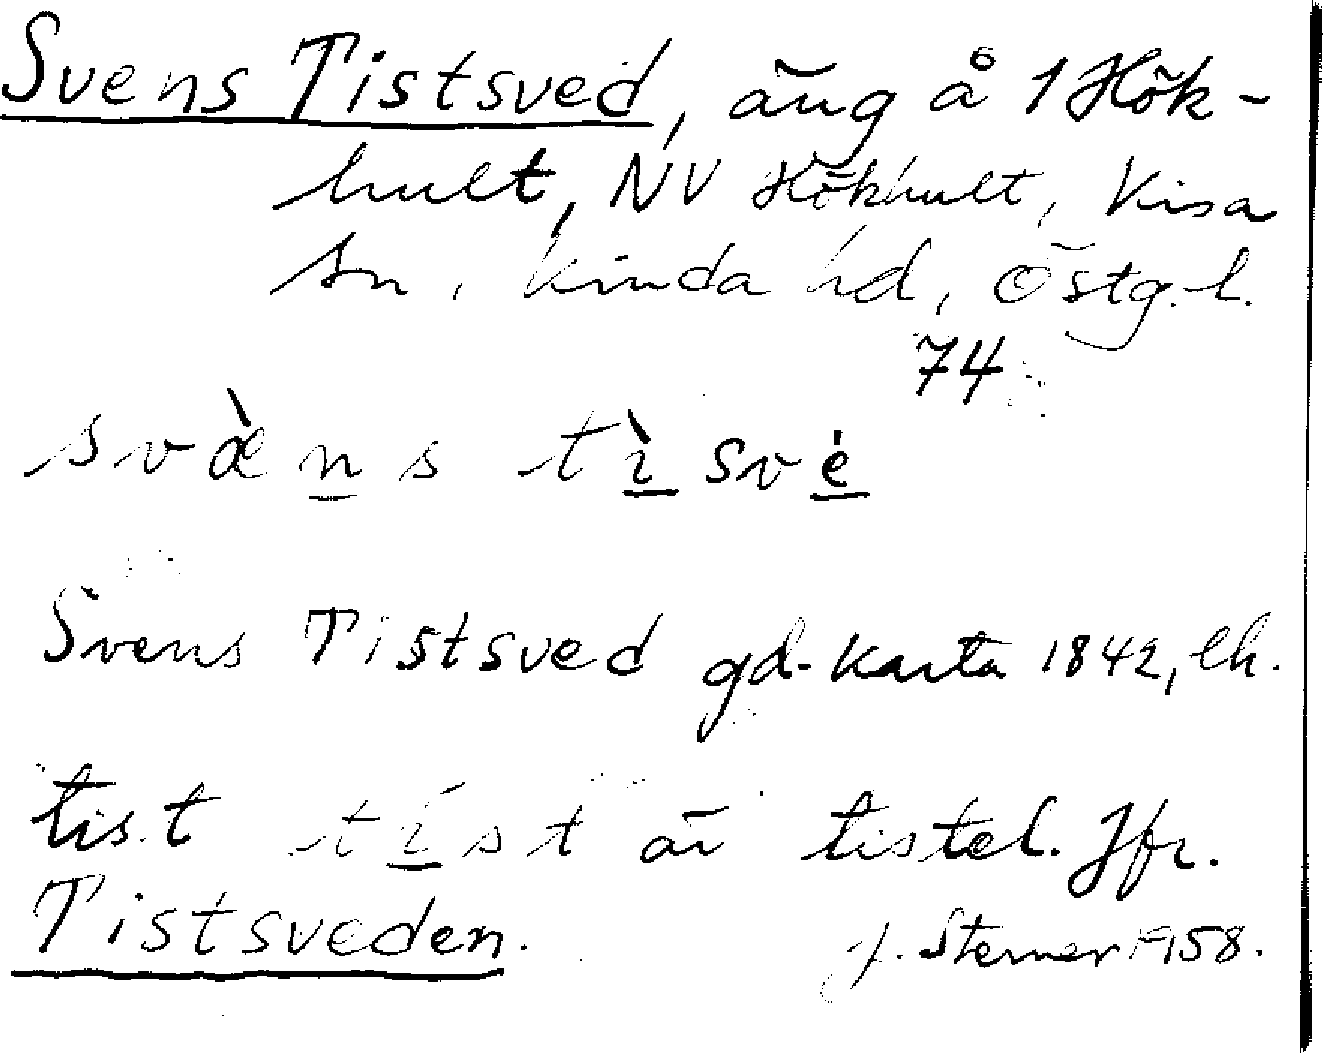 Svens Tistsved, äng å 1 Hök-
hult, NV Hökhult, Kisa
sn, Kinda hd, Östg. l.
74
svæ̀ns tìsvė
Svens Tistsved gd-karta 1842, lh.
tist tíst är tistel. Jfr.
Tistsveden.
J. Sterner 1958.